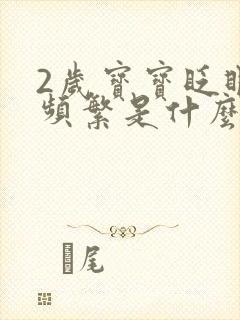 2歲寶寶眨眼
頻繁是什麼
尾